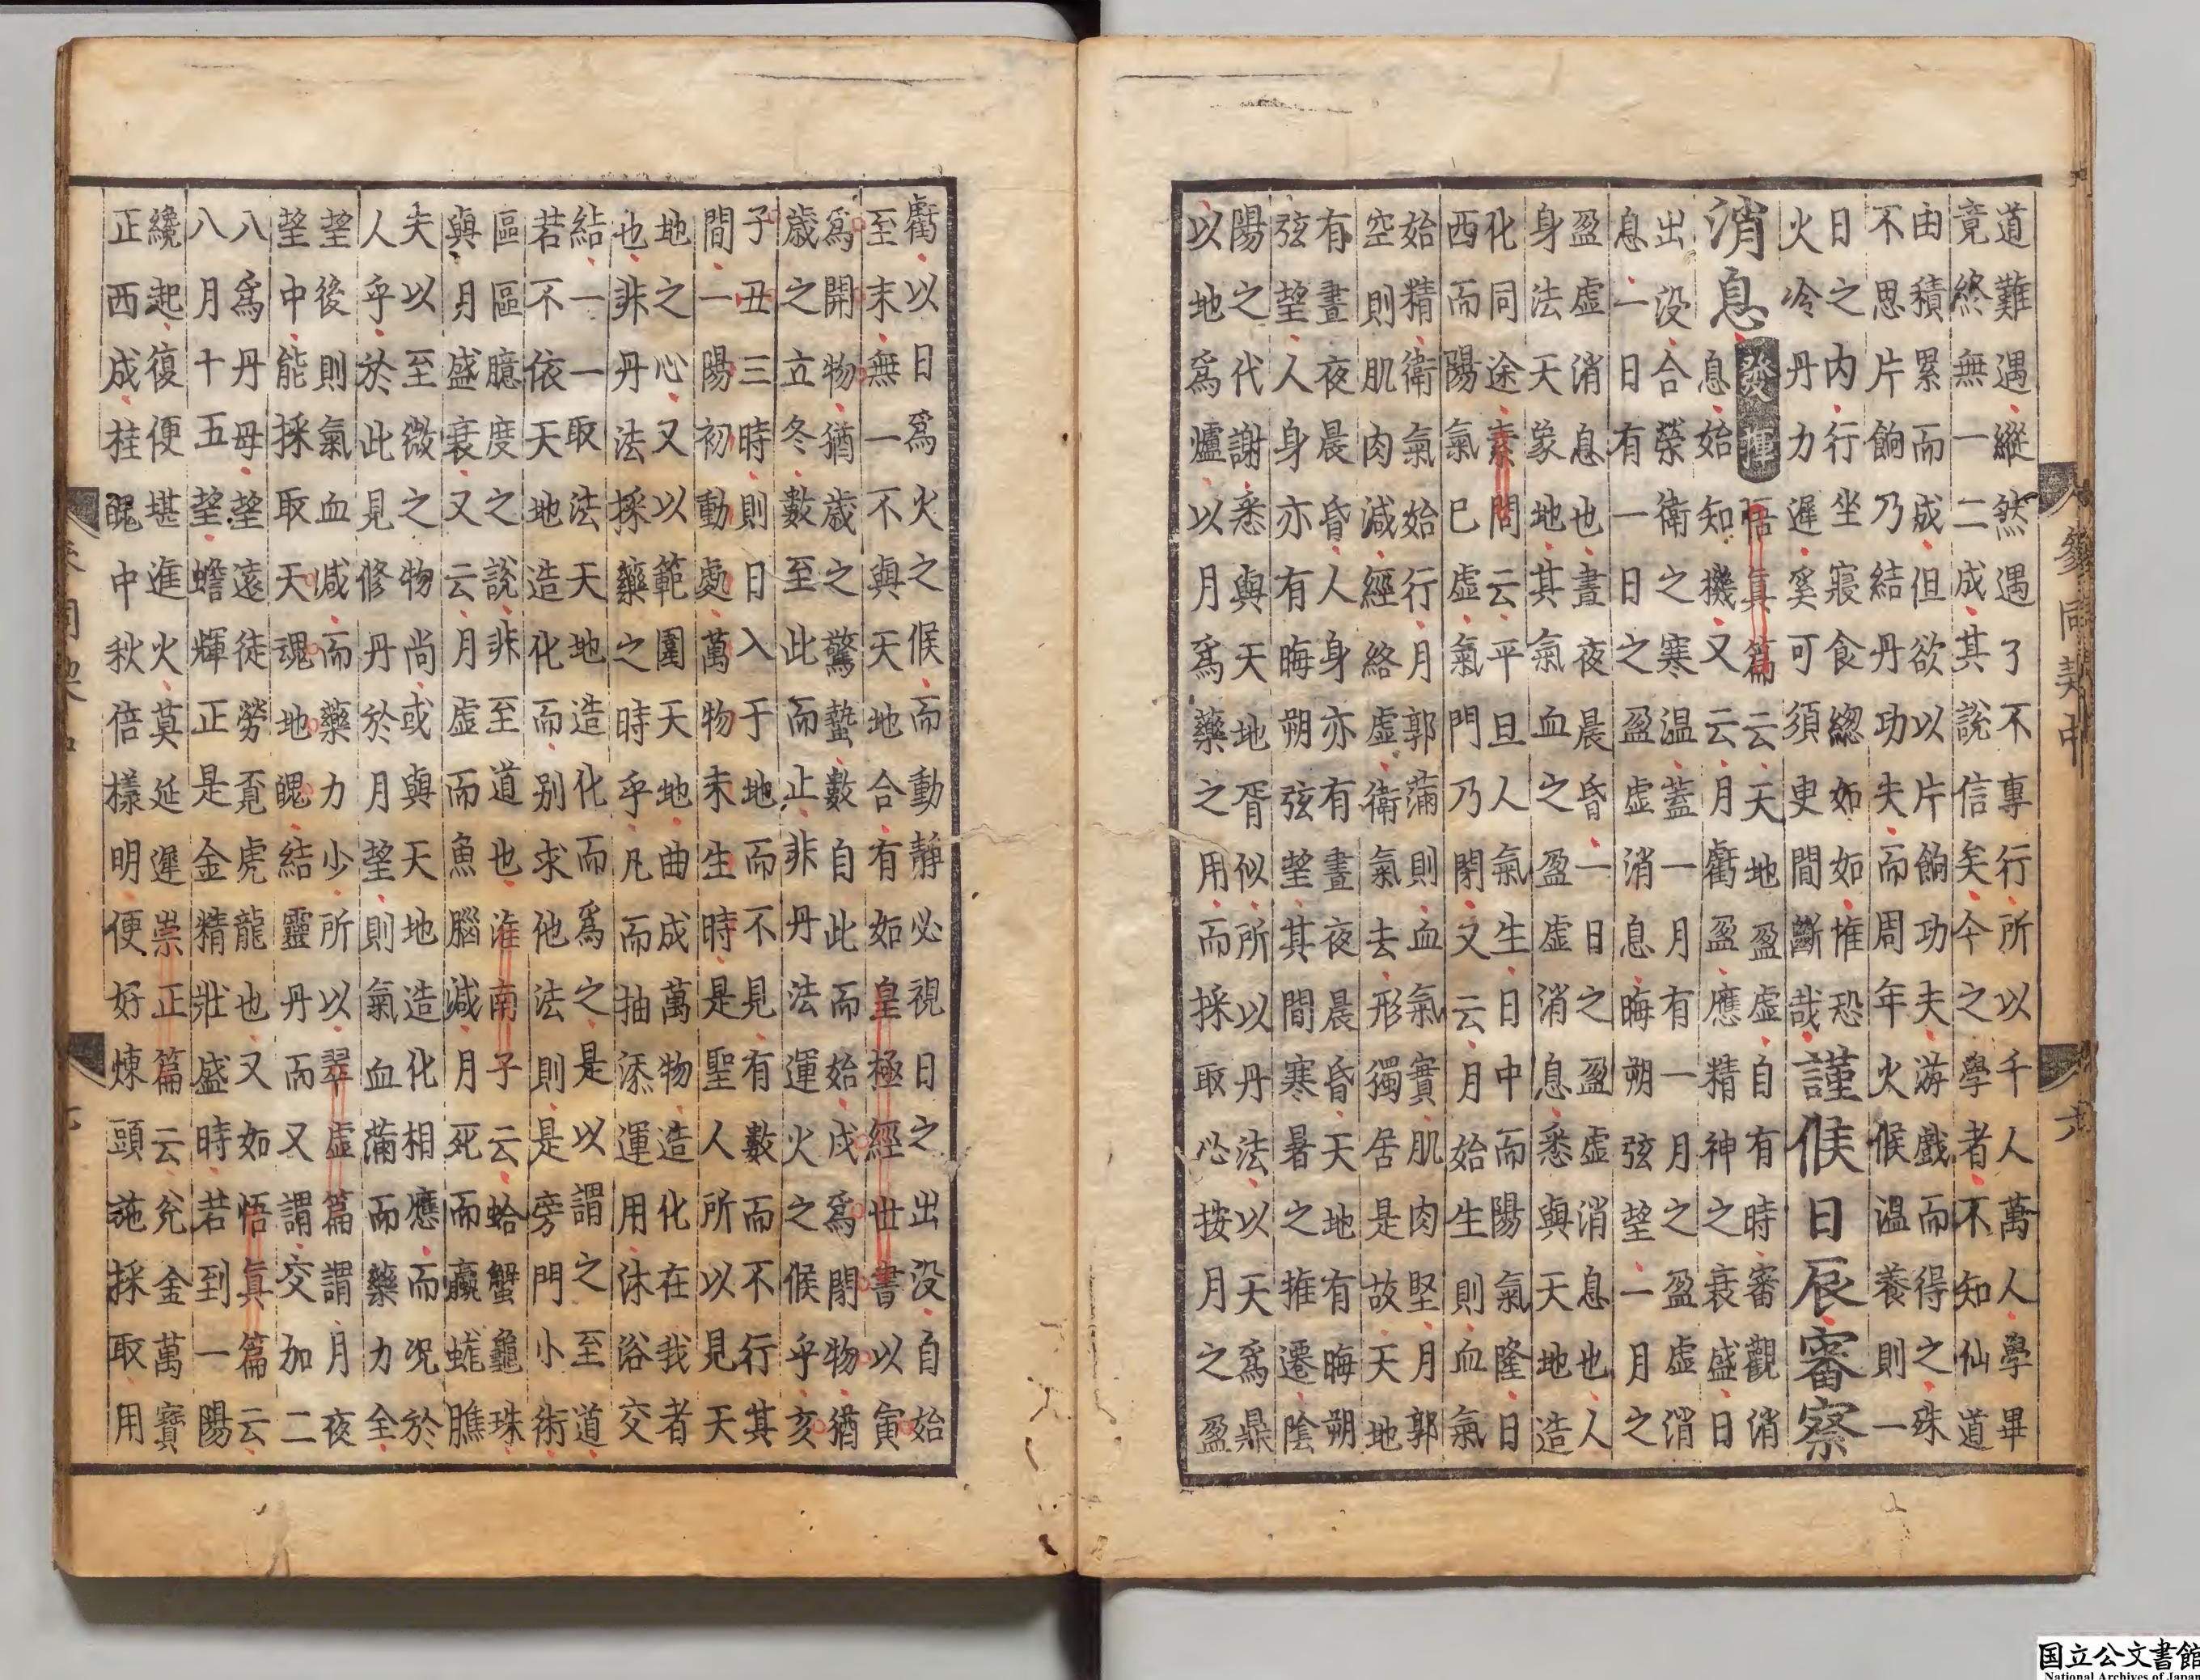 參同契中
六
道難遇縱然遇了不專行所以千人萬人學畢
竟終無一二成其說信矣今之學者不知仙道
由積累而成但欲以片餉功夫游戲而得之殊
不思片餉乃結丹功夫而周年火候溫養則一
日之内行坐寢食緫如如惟恐
火冷丹力遲奚可須㪅間斷哉謹候日辰審察
消息發揮悟真篇云天地盈虛自有時審觀消
息始知機又云月虧盈應精神之衰盛日
出没合榮衛之寒温蓋一月有一月之盈虛消
息一日有一日之盈虛消息晦朔弦望一月之
盈虛消息也晝夜晨昏一日之盈虛消息也人
身法天象地其氣血之盈虛消息悉與天地造
化同途素問云平旦人氣生日中而陽氣隆日
西而陽氣已虛氣門乃閉又云月始生則血氣
始精衛氣始行月郭滿則血氣實肌肉堅月郭
空則肌肉減經絡虛衛氣去形獨居是故天地
有晝夜晨昏人身亦有晝夜晨昏天地有晦朔
弦望人身亦有晦朔弦望其間寒暑之推遷陰
陽之代謝悉與天地胥似所以丹法以天爲鼎
以地爲爐以月爲藥之用而採取必按月之盈
虧以日爲火之候而動靜必視日之出没自始
至末無一不與天地合有如皇極經世書以寅
爲開物猶歲之驚蟄數自此而始戌爲閉物猶
歲之立冬數至此而止非丹法運火之候乎亥
子丑三時則日入于地而不見有數而不行其
間一陽初動處萬物未生時是聖人所以見天
地之心又以範圍天地曲成萬物造化在我者
也非丹法採藥之時乎凡而抽添運用沐浴交
結一一取法天地造化而爲之是以謂之至道
若不依天地造化而别求他法則是旁門小術
區區臆度之說非至道也淮南子云蛤蟹龜珠
與月盛衰又云月虛而魚腦減月死而蠃蛖膲
夫以至微之物尚或與天地造化相應而况於
人乎於此見修丹於月望則氣血滿而藥力全
望後則氣血減而藥力少所以翠虛篇謂月夜
望中能採取天魂地魄結靈丹而又謂交加二
八爲丹母望遠徒勞覔虎龍也又如悟眞篇云
八月十五望蟾輝正是金精壯盛時若到一陽
纔起復便堪進火莫延遲崇正篇云兊金萬寶
正西成桂魄中秋倍樣明便好煉頭施採取用